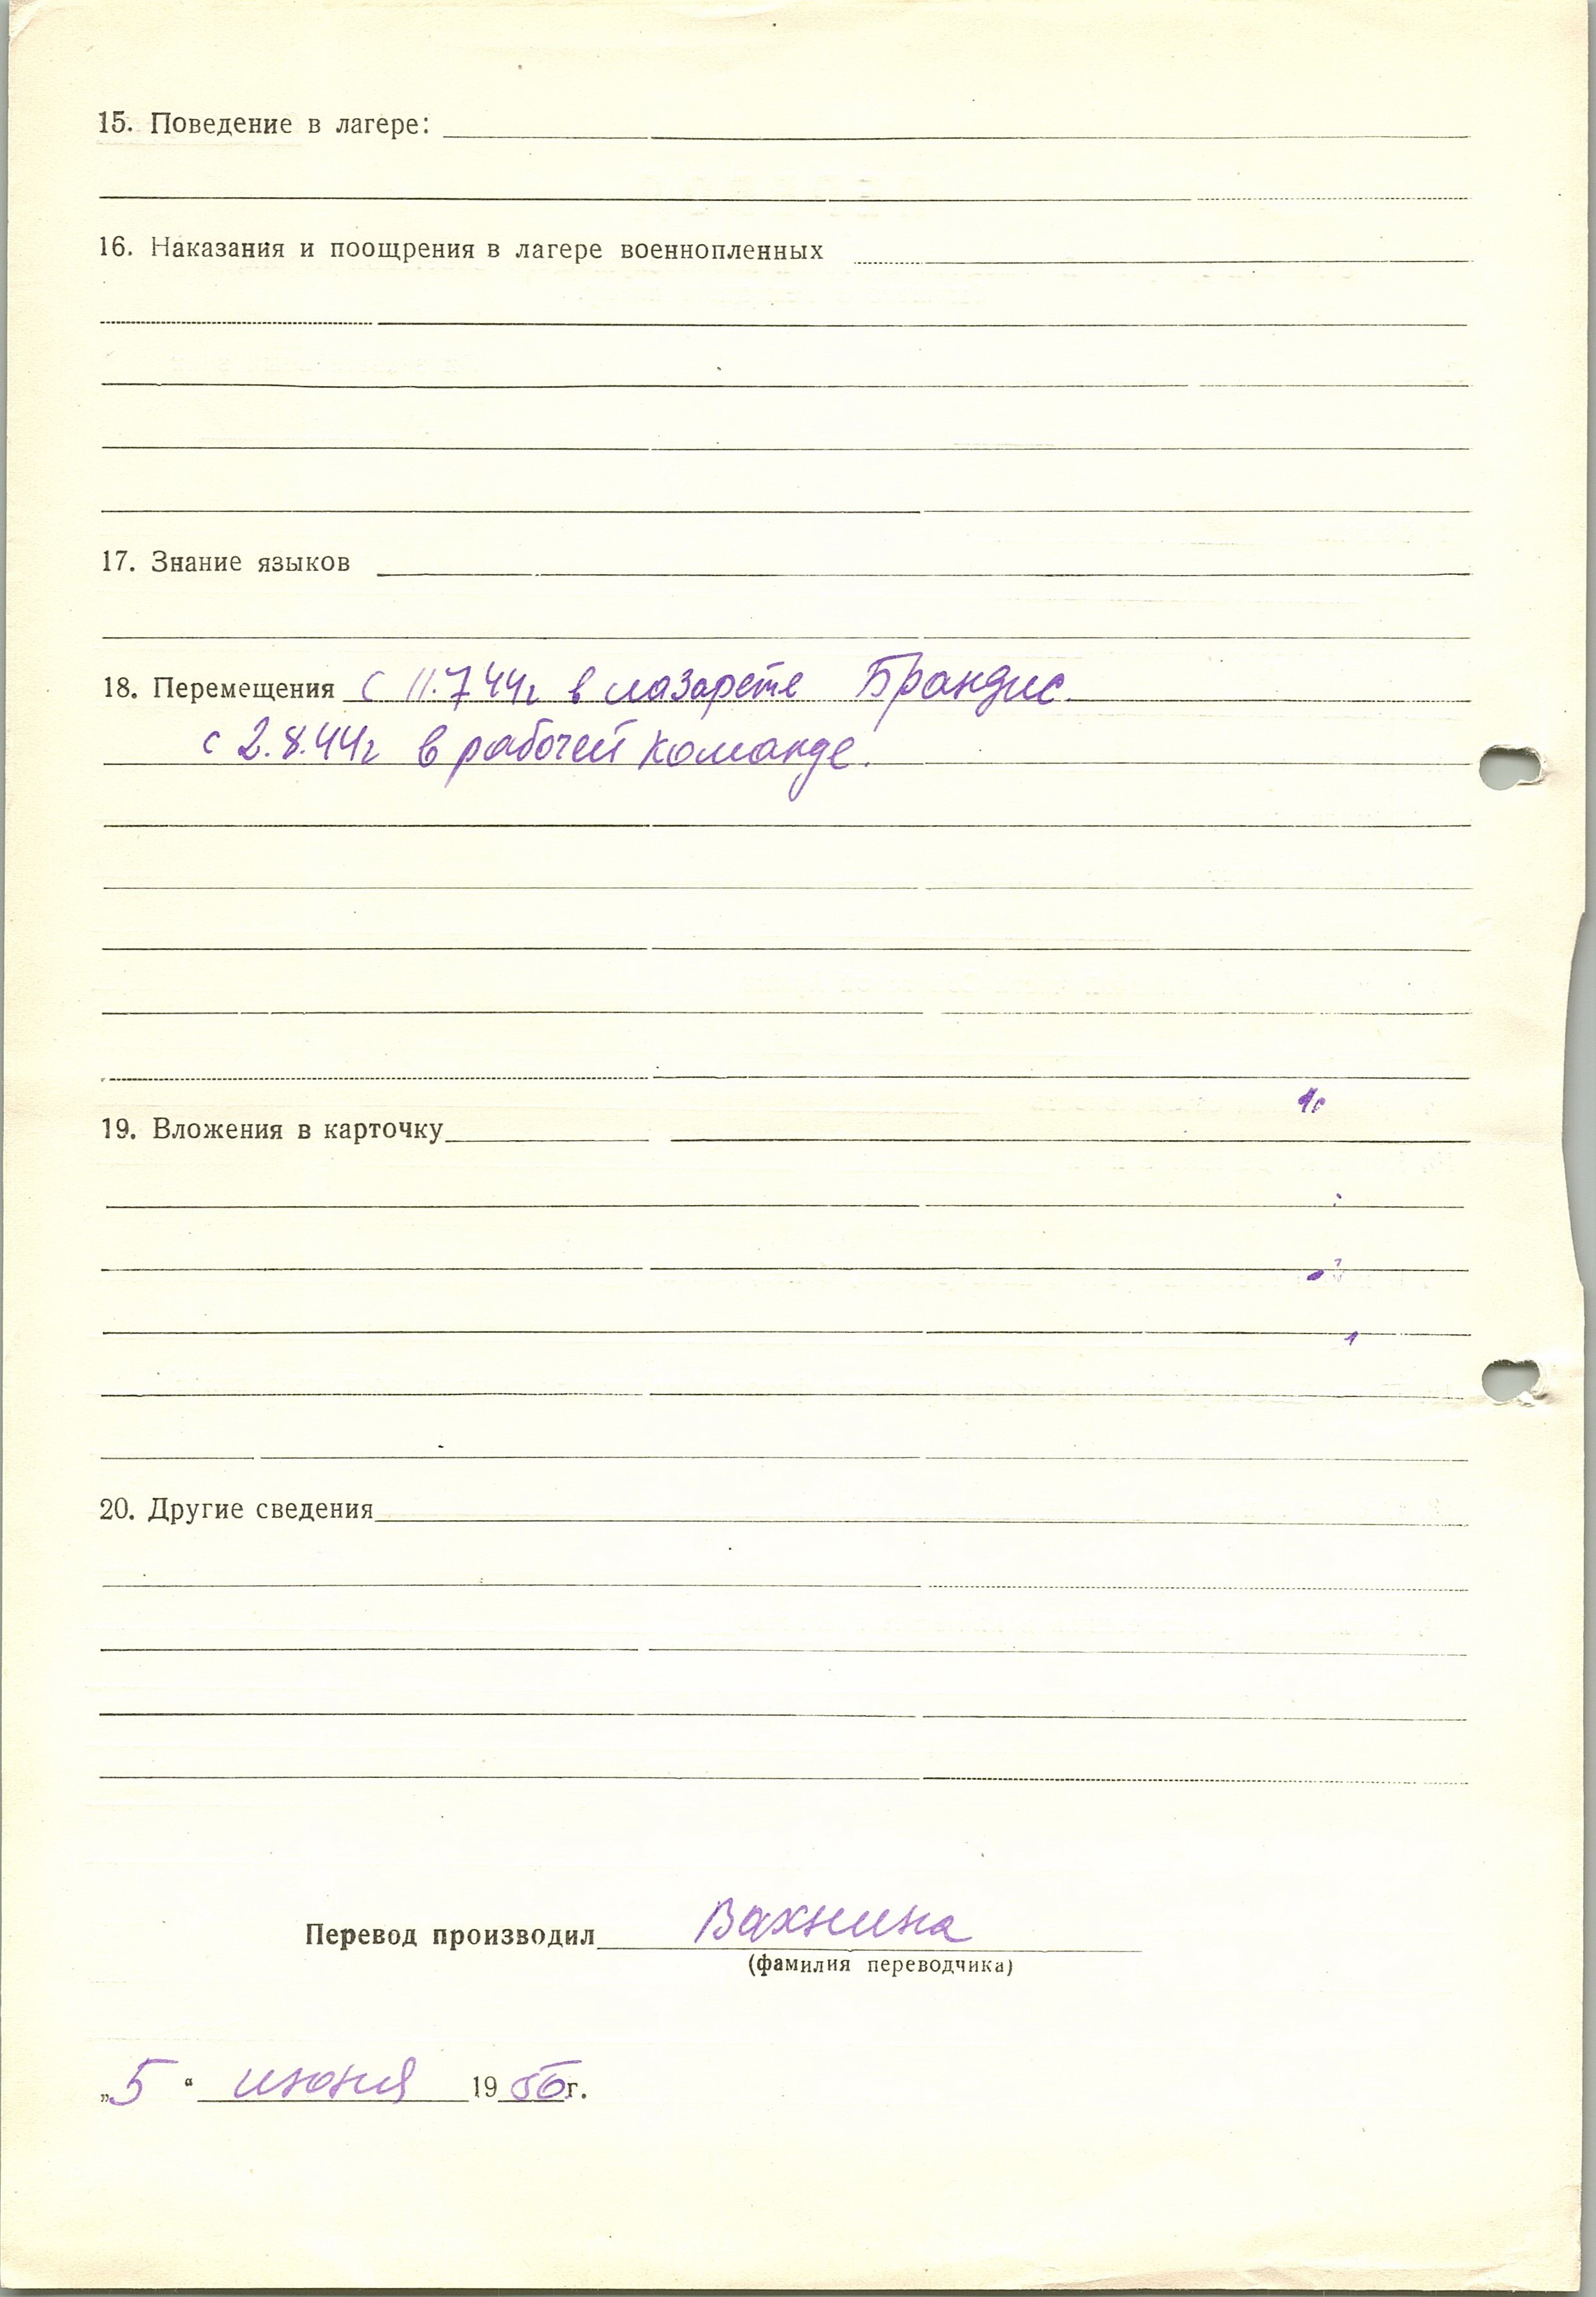 15. Поведение в лагере:
16. Наказания и поощрения в лагере военнопленных
17. Знание языков
18. Перемещения с 11.7 44г в лазарете Брандис.
с 2.8.44г в рабочей команде.
19. Вложения в карточку
20. Другие сведения
Перевод производил Вахнина
(фамилия переводчика)
„5“ июня 1956г.